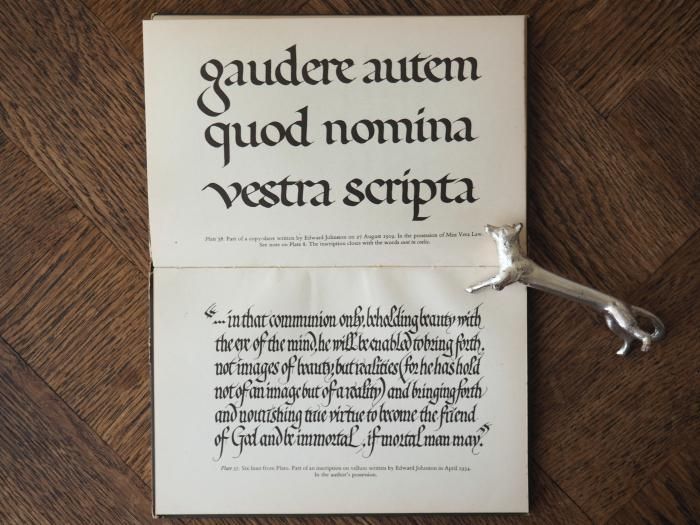 gaudere autem
quod nomina
vestra scripta
Plate 38: Part of a copy-sheet written by Edward Johnston on 27 August 1919. In the possession of Miss Vera Law.
See note on Plate 8. The inscription closes with the words sunt in coelis.
“... in that communion only, beholding beauty with
the eye of the mind, he will be enabled to bring forth,
not images of beauty, but realities (for he has hold
not of an image but of a reality) and bringing forth
and nourishing true virtue to become the friend
of God and be immortal, if mortal man may.”
Plate 37: Six lines from Plato. Part of an inscription on vellum written by Edward Johnston in April 1934.
In the author's possession.